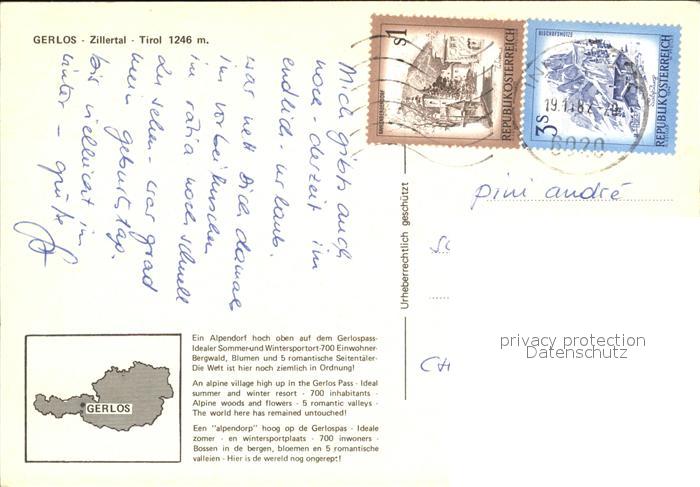 GERLOS - Zillertal - Tirol 1246 m.
Mich gibts auch
noch - derzeit im
endlich - urlaub.
war nett Dich damals
im vorbeihuschen
in ratia noch schnell
zu sehen - war grad
mein geburtstag.
bis vielleicht im
winter - grüße
S1
REPUBLIK ÖSTERREICH
BISCHOFSMÜTZE
3S
REPUBLIK ÖSTERREICH
19.1.82-20
6020
pini andré
CH
Urheberrechtlich geschützt
privacy protection
Datenschutz
GERLOS
Ein Alpendorf hoch oben auf dem Gerlospass-
Idealer Sommer-und Wintersportort-700 Einwohner-
Bergwald, Blumen und 5 romantische Seitentäler-
Die Welt ist hier noch ziemlich in Ordnung!
An alpine village high up in the Gerlos Pass - Ideal
summer and winter resort - 700 inhabitants -
Alpine woods and flowers - 5 romantic valleys -
The world here has remained untouched!
Een "alpendorp" hoog op de Gerlospas - Ideale
zomer - en wintersportplaats - 700 inwoners -
Bossen in de bergen, bloemen en 5 romantische
valleien - Hier is de wereld nog ongerept!